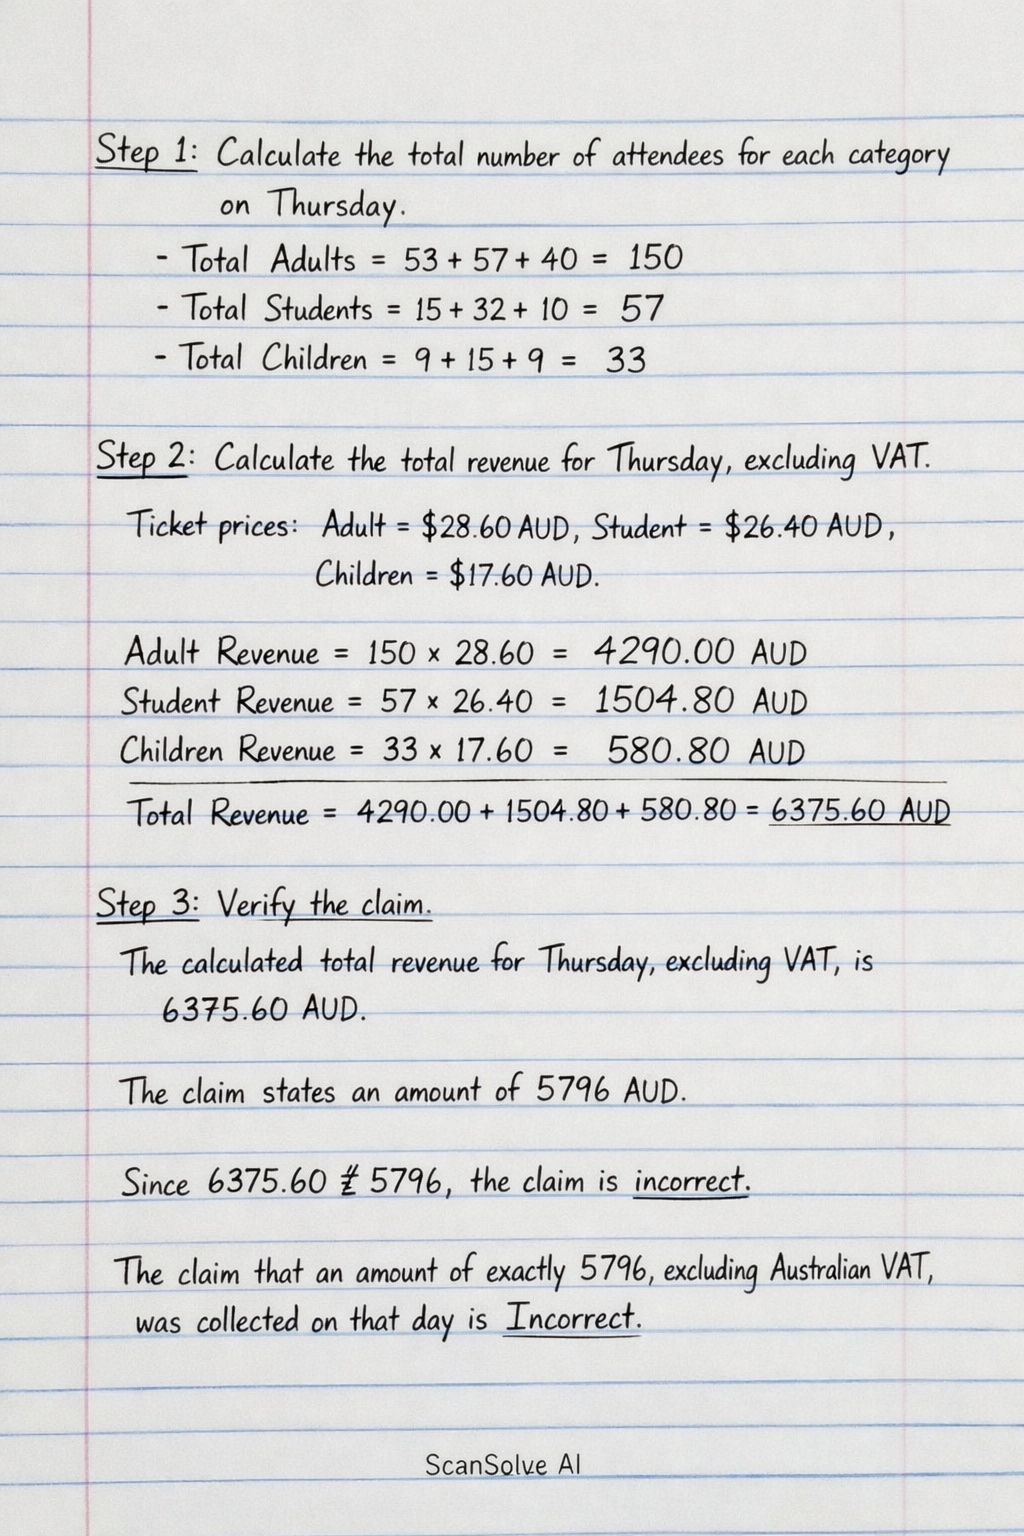 Step 1: Calculate the total number of attendees for each category
on Thursday.
- Total Adults = 53 + 57 + 40 = 150
- Total Students = 15 + 32 + 10 = 57
- Total Children = 9 + 15 + 9 = 33
Step 2: Calculate the total revenue for Thursday, excluding VAT.
Ticket prices: Adult = $28.60 AUD, Student = $26.40 AUD,
Children = $17.60 AUD.
Adult Revenue = 150 × 28.60 = 4290.00 AUD
Student Revenue = 57 × 26.40 = 1504.80 AUD
Children Revenue = 33 × 17.60 = 580.80 AUD
Total Revenue = 4290.00 + 1504.80 + 580.80 = 6375.60 AUD
Step 3: Verify the claim.
The calculated total revenue for Thursday, excluding VAT, is
6375.60 AUD.
The claim states an amount of 5796 AUD.
Since 6375.60 ≠ 5796, the claim is incorrect.
The claim that an amount of exactly 5796, excluding Australian VAT,
was collected on that day is Incorrect.
ScanSolve AI